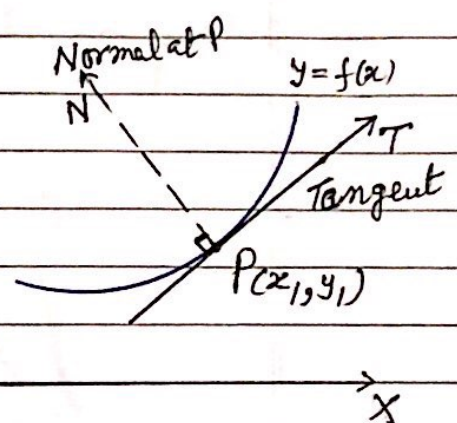 Normal at P
y = f(x)
N
T
Tangent
P(x₁, y₁)
X